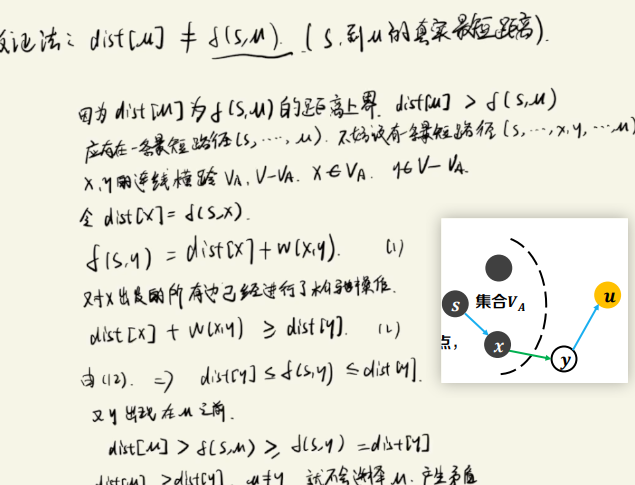 证法: dist[u] ≠ f(s,u). (s,到u的真实最短距离).
因为 dist[u]为f(s,u)的距离上界. dist[u] > f(s,u)
应存在一条最短路径(s,…,u). 不妨设有一条最短路径(s,…,x,y,…u)
x,y的连线横跨 VA,V-VA. x∈VA. y∈V-VA.
令 dist[x]= f(s,x).
f(s,y) = dist[x]+w(x,y). (1)
又对x出发的所有边已经进行了松弛操作.
dist[x] + w(x,y) ≥ dist[y]. (2)
由(12). => dist[y] ≤ f(s,y) ≤ dist[y].
又y出现在u之前.
dist[u] > f(s,u) ≥ f(s,y) = dist[y]
dist[u] > dist[y]. u≠y 就不会选择u. 产生矛盾
s
集合VA
u
点,
x
y